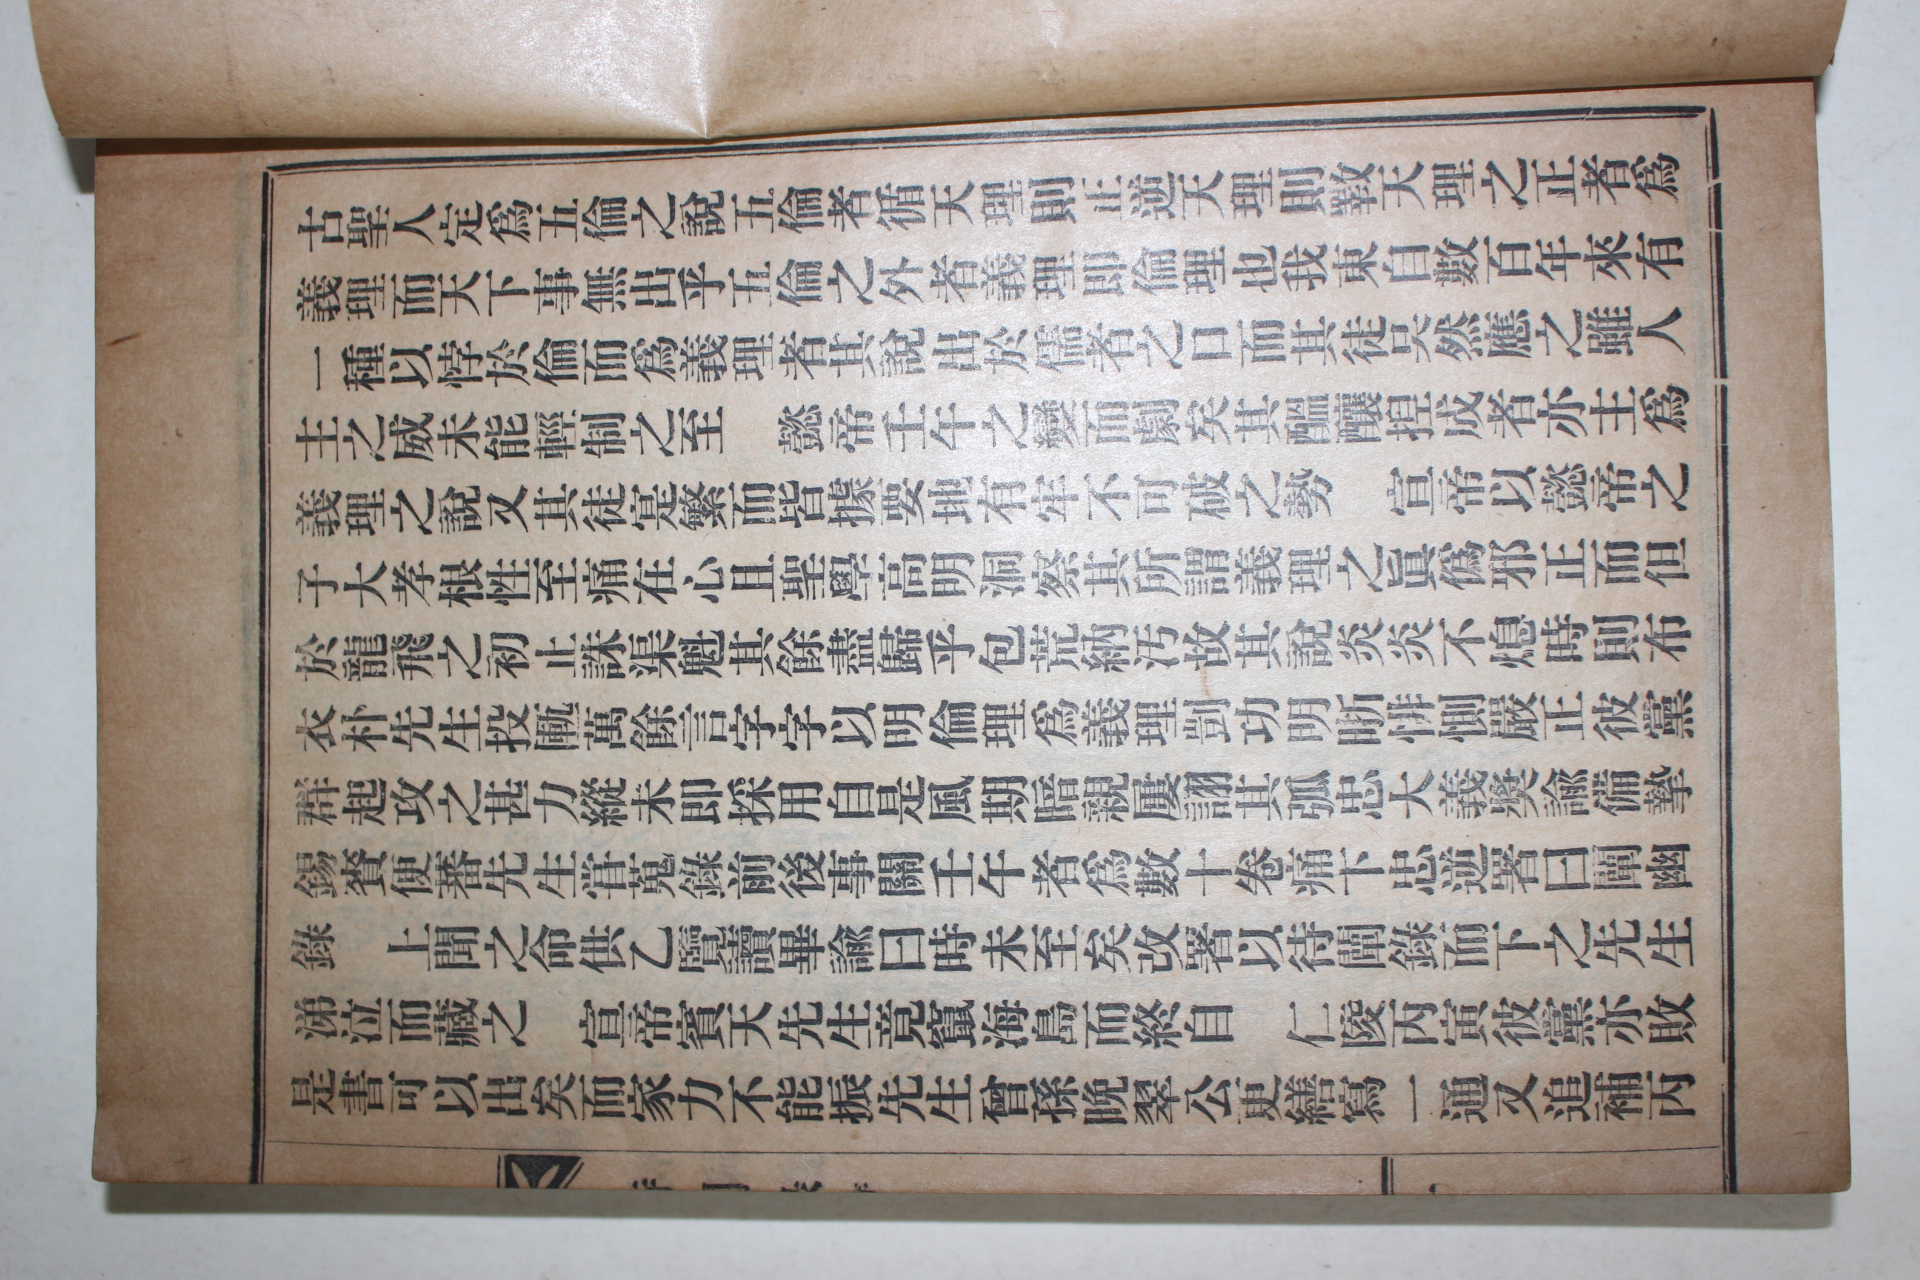 古聖人定爲五倫之說五倫者循天理則正逆天理則斁天理之正者爲
義理而天下事無出乎五倫之外者義理卽倫理也我東自數百年來有
一種以悖於倫而爲義理者其說出於儒者之口而其徒哄然應之雖人
主之威未能輕制之至　懿帝壬午之變而劇矣其醞釀捏成者亦主爲
義理之說又其徒寔繁而皆據要地有牢不可破之勢　宣帝以懿帝之
子大孝根性至痛在心且聖學高明洞察其所謂義理之眞僞邪正而但
於龍飛之初止誅渠魁其餘盡歸乎包荒納汚故其說炎炎不熄時則布
衣朴先生投匭萬餘言字字以明倫理爲義理剴切明晣悱惻嚴正彼黨
群起攻之甚力縱未卽採用自是風期暗親屢詡其孤忠大義獎諭備摯
錫賚便蕃先生嘗蒐錄前後事關壬午者爲數十卷痛卞忠逆署曰闡幽
錄　上聞之命供乙覽讀畢諭曰時未至矣改署以待闡錄而下之先生
涕泣而藏之　宣帝賓天先生竟竄海島而終自　仁陵丙寅彼黨亦敗
是書可以出矣而家力不能振先生曾孫晩翠公更繕寫一通又追補丙